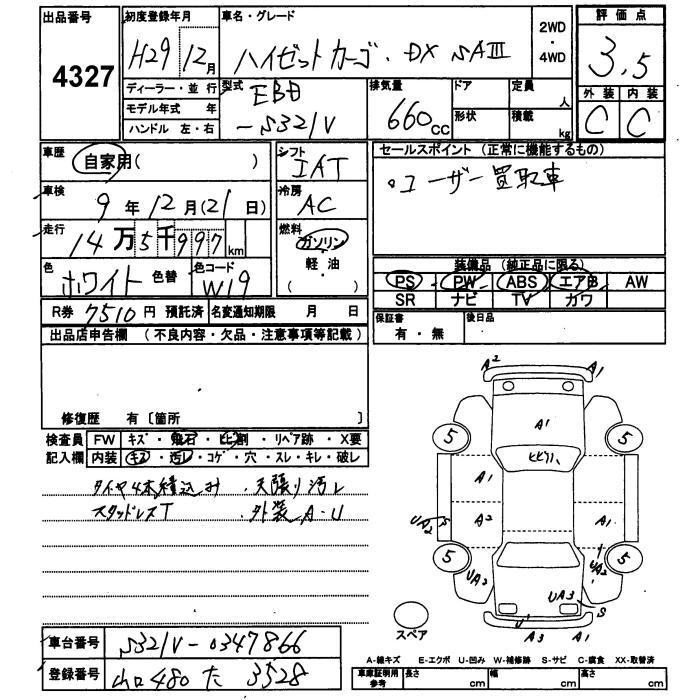 出品番号
4327
初度登録年月
H29 12月
車名・グレード
ハイゼットカーゴ・DX SAIII
2WD・4WD
評価点
3.5
外装 内装
C C
ディーラー・並行
モデル年式 年
ハンドル 左・右
型式
EBD
-S321V
排気量
660cc
ドア
形状
定員 人
積載 kg
車歴
自家用( )
車検
9年12月(21日)
走行
14万5千997km
色
ホワイト 色替
色コード
W19
シフト
IAT
冷房
AC
燃料
ガソリン
軽・油
( )
セールスポイント (正常に機能するもの)
○ユーザー買取車
装備品 (純正品に限る)
PS PW ABS エアB AW
SR ナビ TV カワ
R券 7510円 預託済 名変通知期限 月 日
保証書 有・無
後日品
出品店申告欄 (不良内容・欠品・注意事項等記載)
修復歴 有〔箇所 〕
検査員記入欄
FW キズ・飛石・ヒビ割・リペア跡・X要
内装 キズ・汚レ・コゲ・穴・スレ・キレ・破レ
タイヤ4本積込み ・天張り汚レ
スタッドレスT ・外装A・U
A2 A1
A1
ヒビワレ
5 5
A1
A2 A1
UA2 S
5 5
UA2 UA2
UA3
S
U
A3 A1
スペア
A-線キズ E-エクボ U-凹み W-補修跡 S-サビ C-腐食 XX-取替済
車庫証明用参考 長さ cm 幅 cm 高さ cm
車台番号 S321V-0347866
登録番号 山口480 た 3528